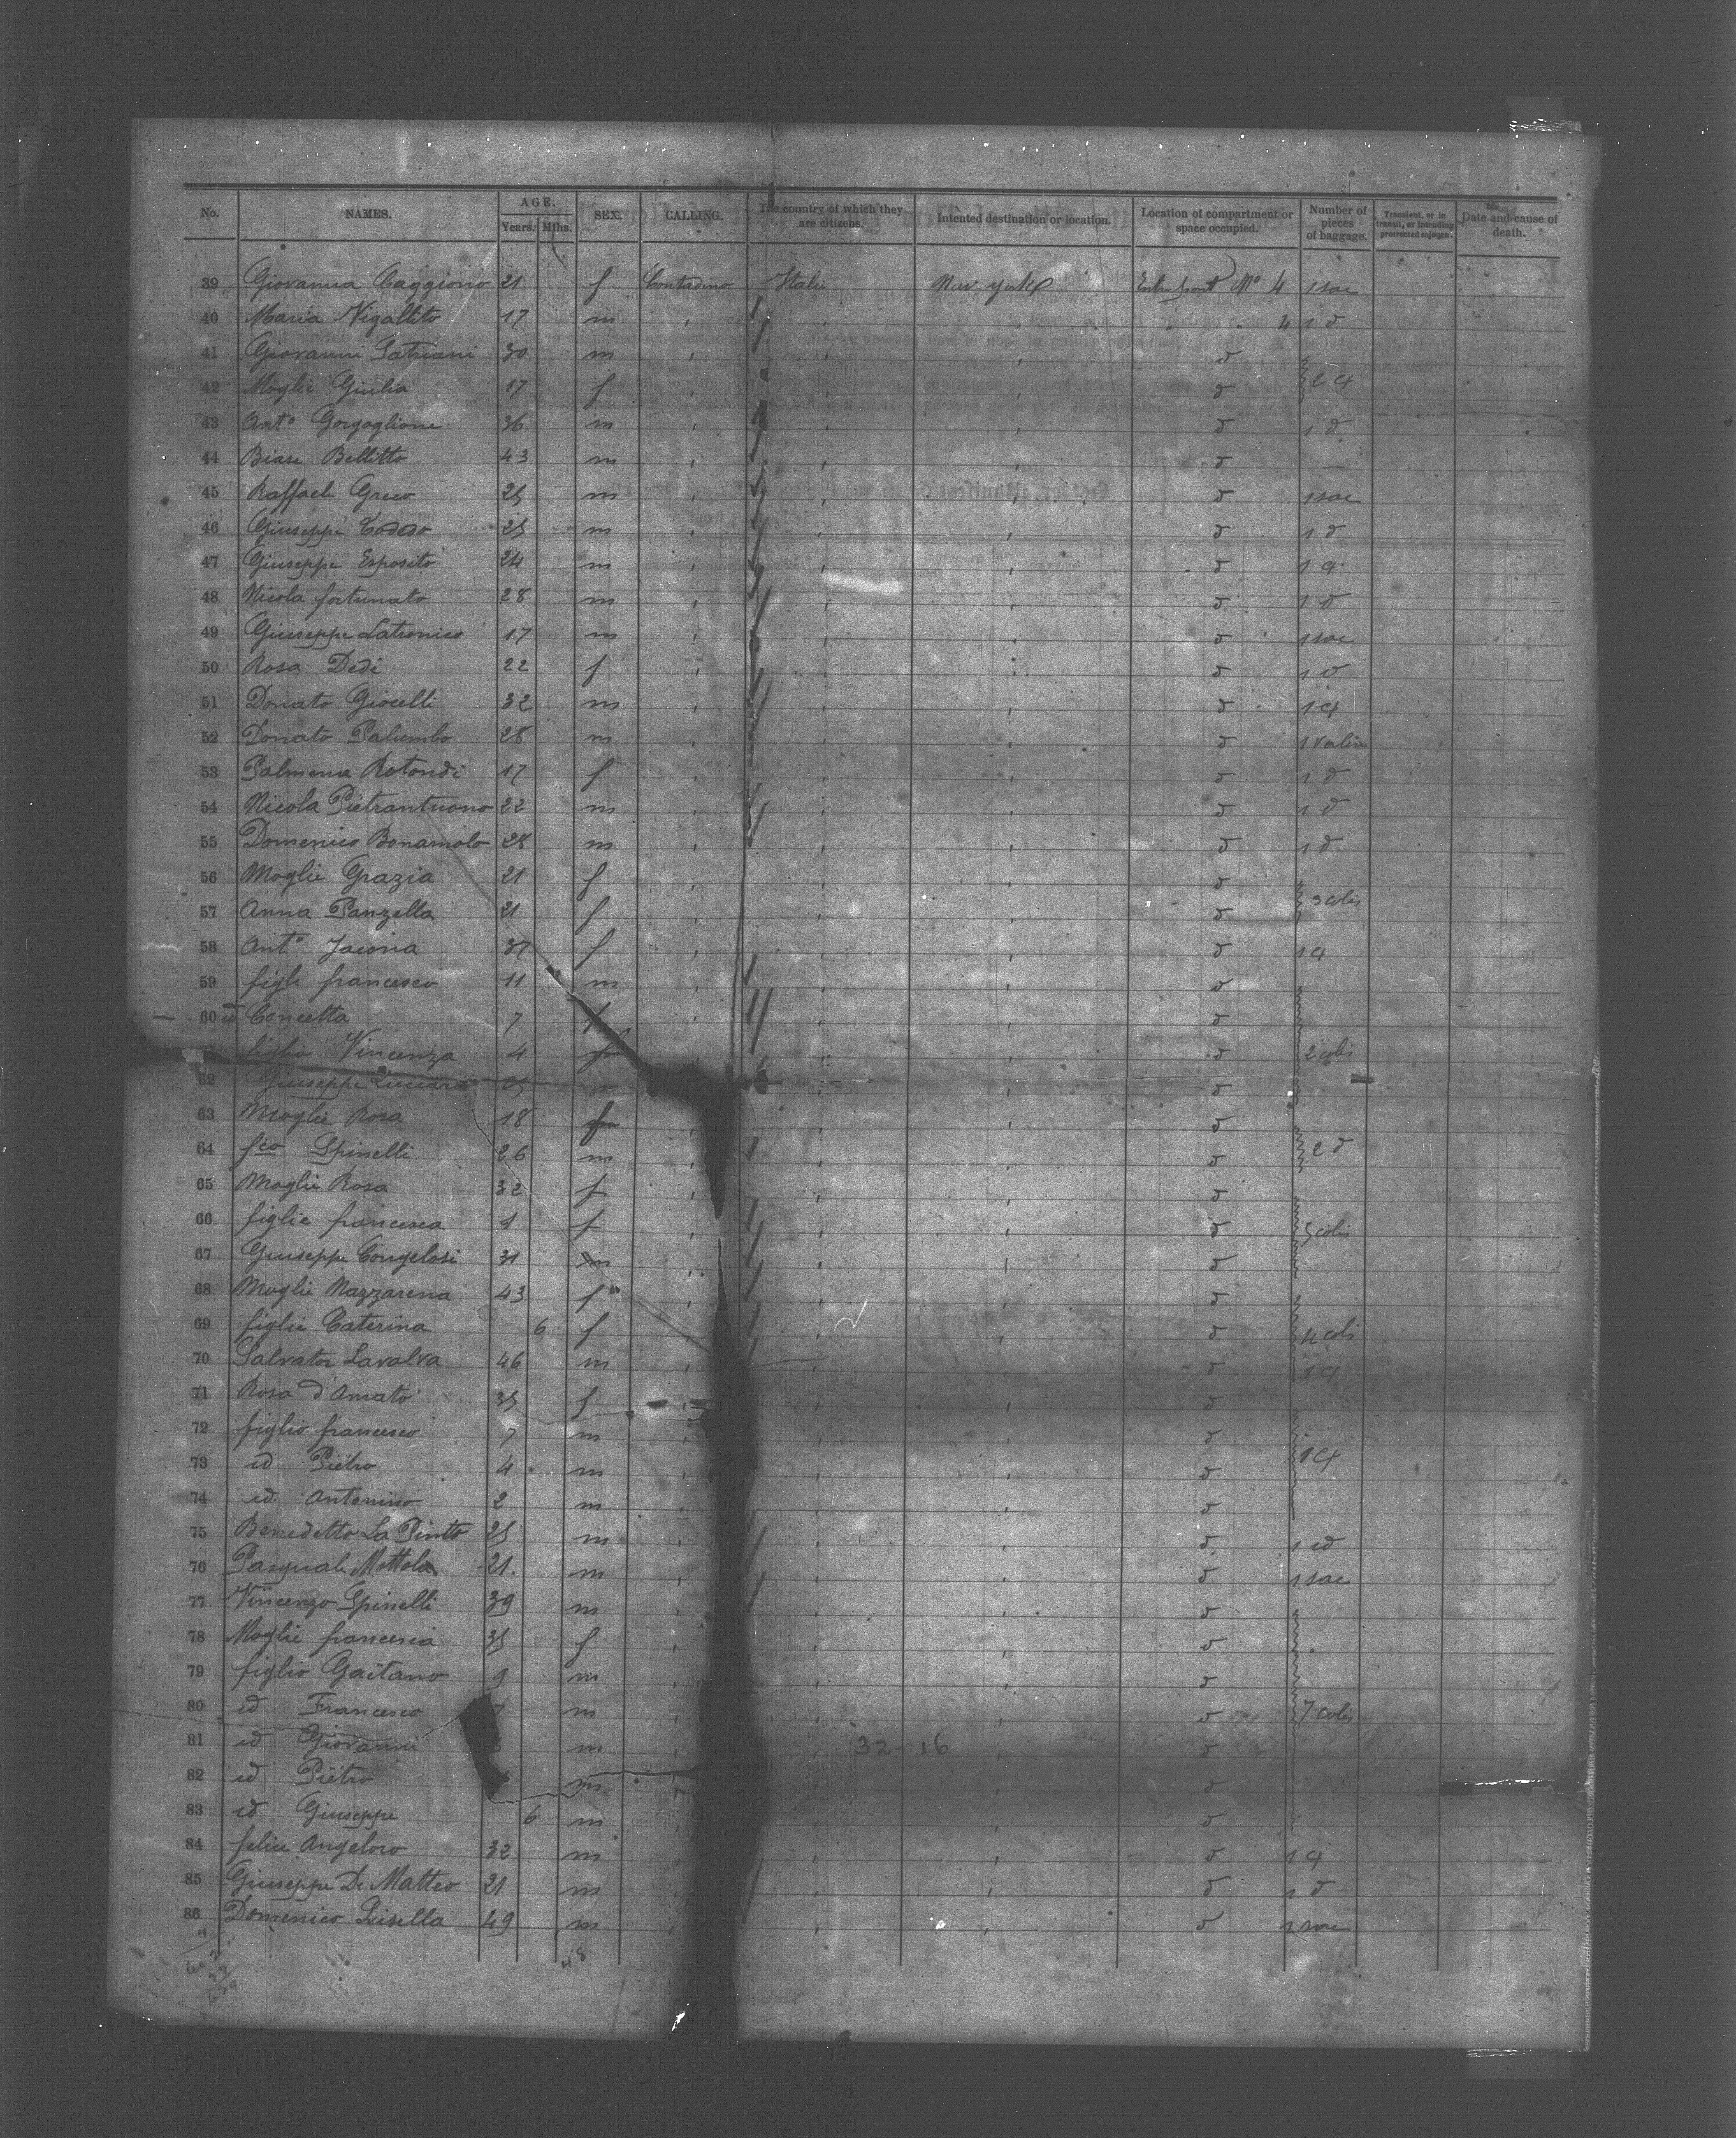 No. NAMES. AGE. Years. Mths. SEX. CALLING. The country of which they are citizens. Intented destination or location. Location of compartment or space occupied. Number of pieces of baggage. Transient, or in transit, or intending protracted sojourn. Date and cause of death.
39 Giovanna Caggiono 21 f Contadino Italie New york Entrepont No 4 1 sac
40 Maria Vigallito 17 m 4 1 d
41 Giovanni Satriani 30 m d
42 Moglie Giulia 17 f d 2 d
43 Anto Gorgoglione 36 m d 1 d
44 Biase Bellitto 43 m d
45 Raffaele Greco 25 m d 1 sac
46 Giuseppe Todero 25 m d 1 d
47 Giuseppe Esposito 24 m d 1 d
48 Nicola fortunato 28 m d 1 d
49 Giuseppe Latronico 17 m d 1 sac
50 Rosa Dedi 22 f d 1 d
51 Donato Giocelli 32 m d 1 d
52 Donato Palumbo 28 m d 1 valise
53 Palmena Rotondi 17 f d 1 d
54 Nicola Pietrantuono 22 m d 1 d
55 Domenico Bonamolo 28 m d 1 d
56 Moglie Grazia 21 f d
57 Anna Panzella 21 f d 3 colis
58 Anto Jacona 37 f d 1 d
59 figli francesco 11 m d
60 id Concetta 7 f d
figlia Vincenza 4 f d 2 colis
62 Giuseppe m d
63 Moglie Rosa 18 f d
64 fco Spinelli 26 m d 2 d
65 Moglie Rosa 32 f d
66 figlie francesca 4 f d 5 colis
67 Giuseppe Congelosi 31 m d
68 Moglie Nazzarena 43 f d
69 figlie Caterina 6 f d 4 colis
70 Salvator Lavalva 46 m d 1 d
71 Rosa d'Amato 35 f d
72 figlio francesco 7 m d
73 id Pietro 4 m d 1 d
74 id Antonino 2 m d
75 Benedetto La Pinto 25 m d 1 id
76 Pasquale Mottola 21 m d 1 sac
77 Vincenzo Spinelli 39 m d
78 Moglie francesca 35 f d
79 figlio Gaetano 9 m d
80 id Francesco 7 m d 7 colis
81 id Giovanni m 32-16 d
82 id Pietro m d
83 id Giuseppe 6 m d
84 felice Angeloro 32 m d 1 d
85 Giuseppe De Matteo 21 m d 1 d
86 Domenico Lisella 49 m d 1 sac
48